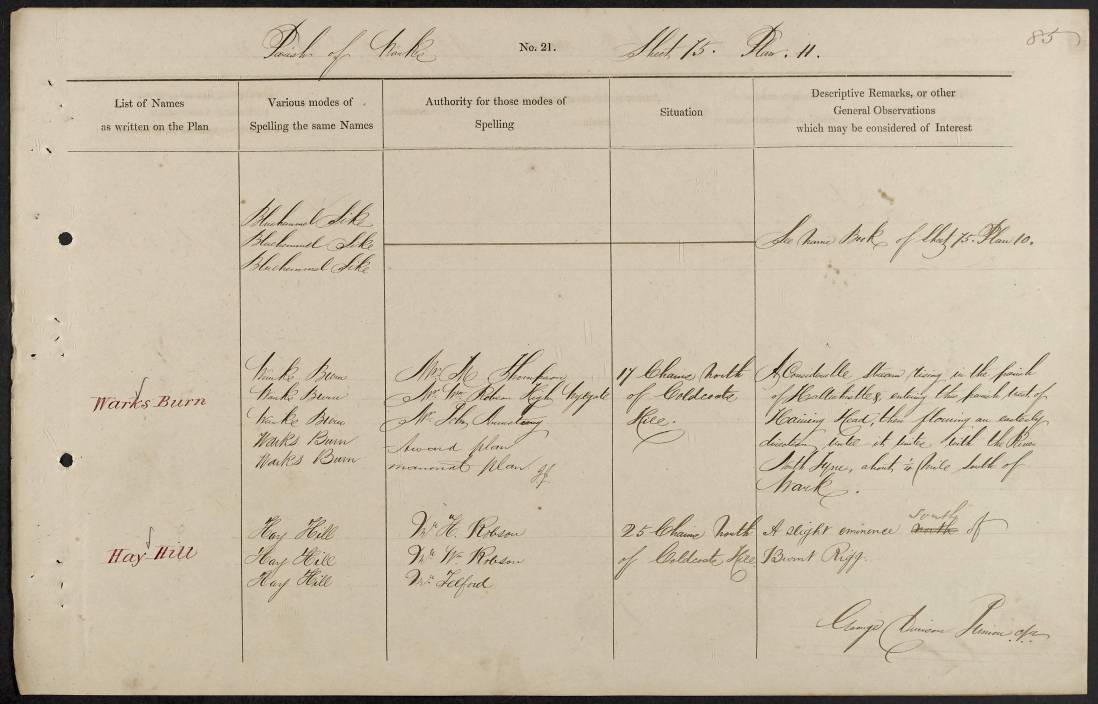 85
Parish of Warks No. 21. Sheet 75. Plan. 11.
List of Names
as written on the Plan
Various modes of
Spelling the same Names
Authority for those modes of
Spelling
Situation
Descriptive Remarks, or other
General Observations
which may be considered of Interest
Sike
Sike
Sike
See Name Book of Sheet 75. Plan 10.
Warks Burn
Warks Burn
Warks Burn
Warks Burn
Warks Burn
Warks Burn
Mr. M. Thompson
Mr. Wm. Robson High
Mr. John Armstrong
Award plan
manorial plan
17 Chains North
of Coldcoats
Hill.
A Considerable stream rising in the parish
of Haltwhistle & entering this parish West of
Haining Head, then flowing an easterly
direction until it unite with the River
North Tyne, about ¼ Mile South of
Wark.
Hay Hill
Hay Hill
Hay Hill
Hay Hill
Mr. H. Robson
Mr. Wm. Robson
Mr. Telford
25 Chains North
of Coldcoats Hill
South
A slight eminence north of
Burnt Rigg.
George